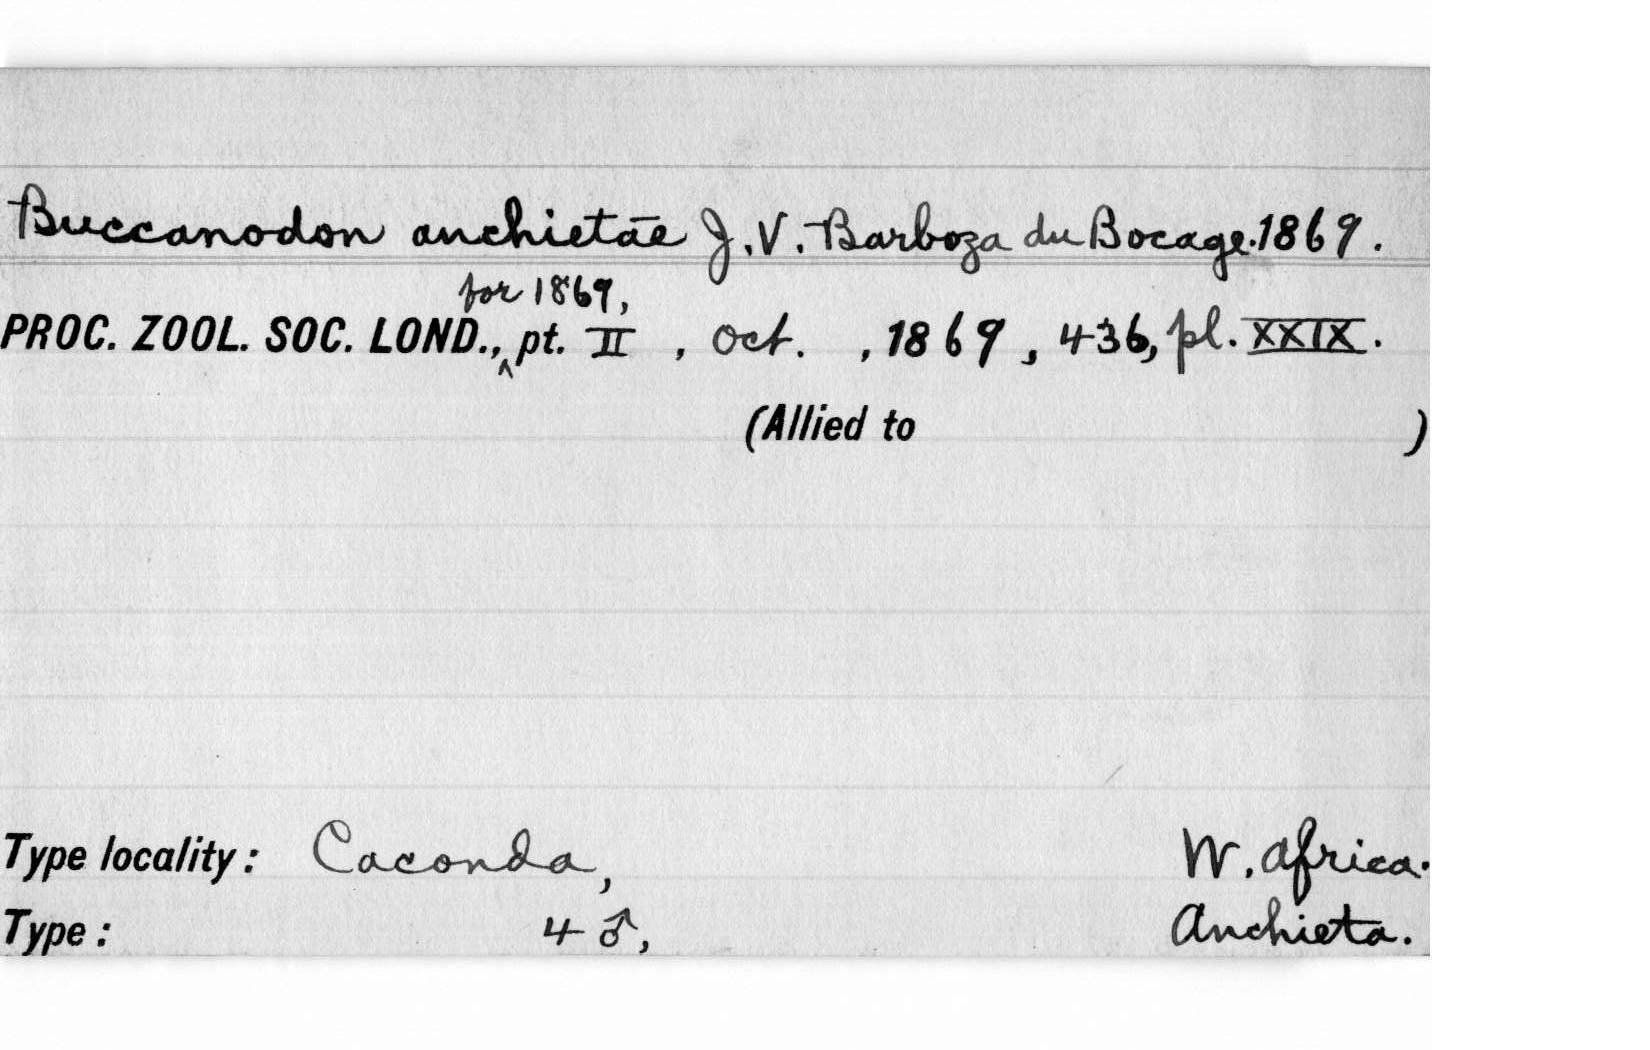 Buccanodon anchietae J.V. Barboza du Bocage. 1869.
for 1869,
PROC. ZOOL. SOC. LOND., ^ pt. II , Oct. , 1869, 436, pl. XXIX.
(Allied to )
Type locality: Caconda, W. Africa.
Type: 4 ♂, Anchieta.